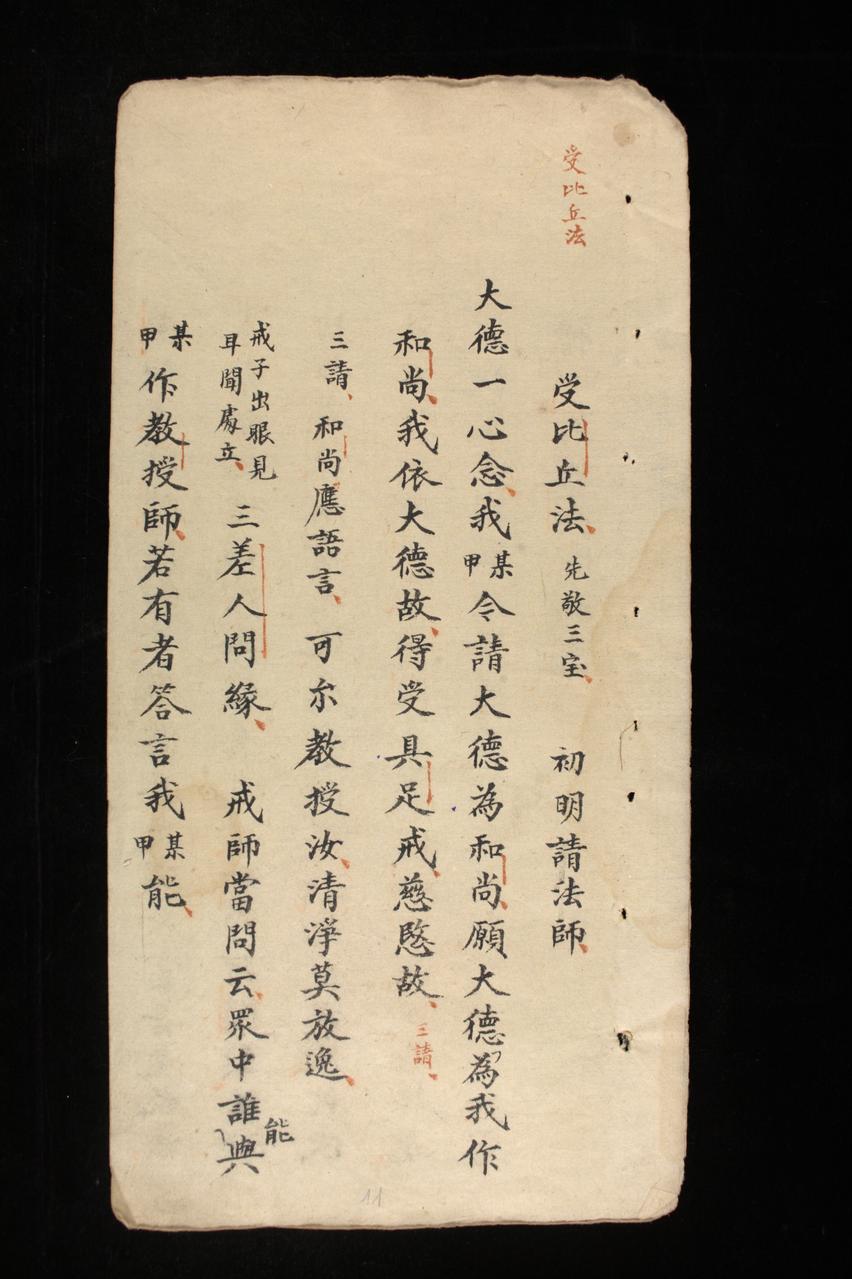 受比丘法
受比丘法 先敬三宝 初明請法師
大德一心念我某甲令請大德為和尚願大德為我作
和尚我依大德故得受具足戒慈愍故 三請
三請 和尚應語言可尒教授汝清淨莫放逸
戒子出眼見耳聞處立 三差人問緣 戒師當問云眾中誰能與
某甲作教授師若有者答言我某甲能
11